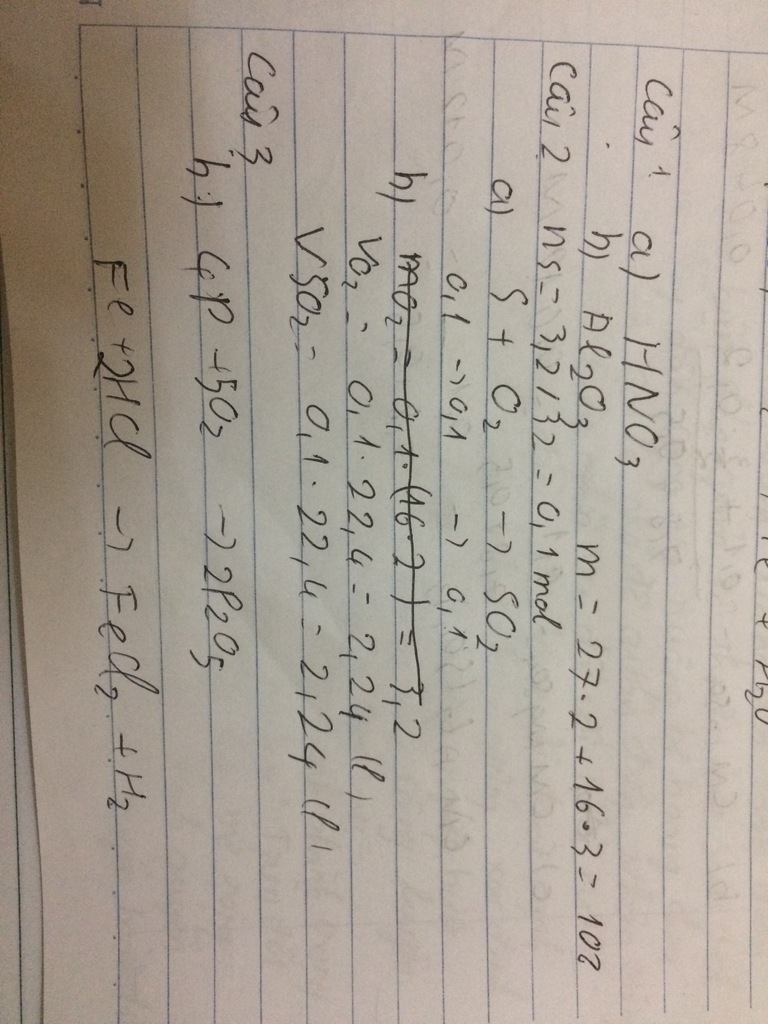 Câu 1 a) HNO3
b) Al2O3 m = 27.2 + 16.3 = 102
Câu 2 nS = 3,2/32 = 0,1 mol
a) S + O2 -> SO2
0,1 -> 0,1 -> 0,1
b) mO2 = 0,1.(16.2) = 3,2
VO2 = 0,1.22,4 = 2,24 (l)
VSO2 = 0,1.22,4 = 2,24 (l)
Câu 3
b) 4P + 5O2 -> 2P2O5
Fe + 2HCl -> FeCl2 + H2